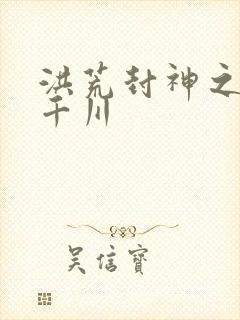 洪荒封神之
干川
吴信宝